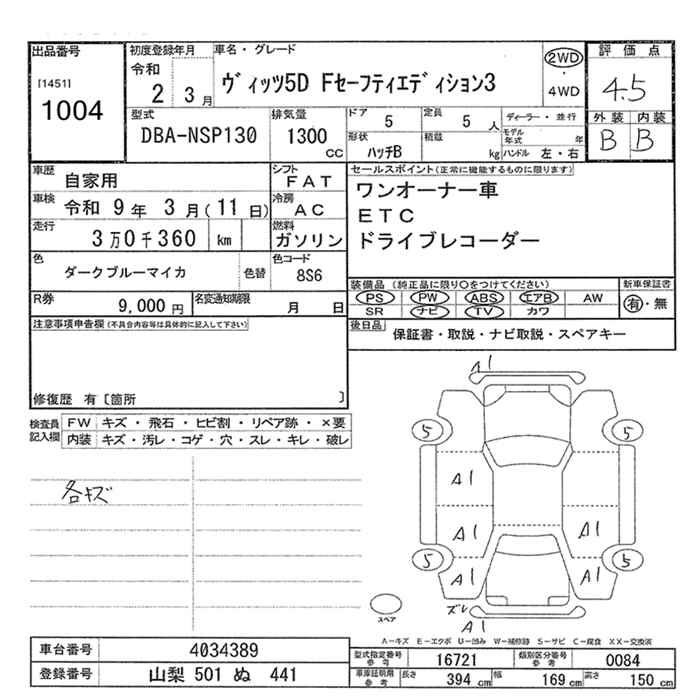 出品番号
[1451]
1004
初度登録年月
令和
2 3月
車名・グレード
ヴィッツ5D Fセーフティエディション3
2WD
・
4WD
評価点
4.5
外装 内装
B B
型式
DBA-NSP130
排気量
1300
CC
ドア
5
定員
5 人
形状
ハッチB
積載
kg
ディーラー・並行
モデル年式 年
ハンドル 左・右
車歴
自家用
シフト
FAT
車検
令和 9年 3月(11日)
冷房
AC
走行
3万0千360 km
燃料
ガソリン
色
ダークブルーマイカ
色替
色コード
8S6
セールスポイント(正常に機能するものに限ります)
ワンオーナー車
ETC
ドライブレコーダー
装備品 (純正品に限り○をつけてください)
PS PW ABS エアB AW
SR ナビ TV カワ
新車保証書
有・無
R券
9,000円
名変通知期限
月 日
後日品
保証書・取説・ナビ取説・スペアキー
注意事項申告欄(不具合内容等は具体的に記入して下さい)
修復歴 有〔箇所 〕
検査員記入欄
FW キズ・飛石・ヒビ割・リペア跡・×要
内装 キズ・汚レ・コゲ・穴・スレ・キレ・破レ
各キズ
A1
5 5
A1
A1 A1
5 5
A1 A1
ズレ
A1
スペア
A−キズ E−エクボ U−凹み W−補修跡 S−サビ C−腐食 XX−交換済
車台番号
4034389
登録番号
山梨 501 ぬ 441
型式指定番号参考
16721
類別区分番号参考
0084
車庫証明用参考
長さ 394 cm 幅 169 cm 高さ 150 cm